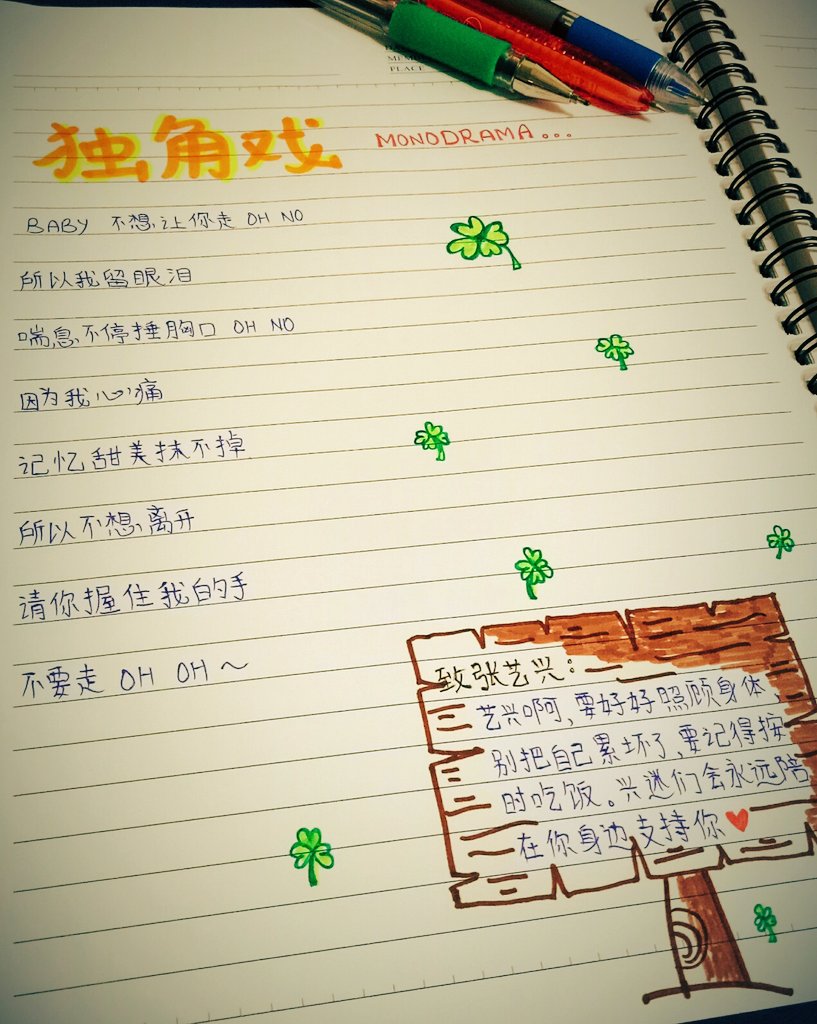 MEM
PLACE
独角戏 MONODRAMA...
BABY 不想让你走 OH NO
所以我留眼泪
喘息不停捶胸口 OH NO
因为我心痛
记忆甜美抹不掉
所以不想离开
请你握住我的手
不要走 OH OH ~
致张艺兴:
艺兴啊,要好好照顾身体,
别把自己累坏了,要记得按
时吃饭。兴迷们会永远陪
在你身边支持你♥